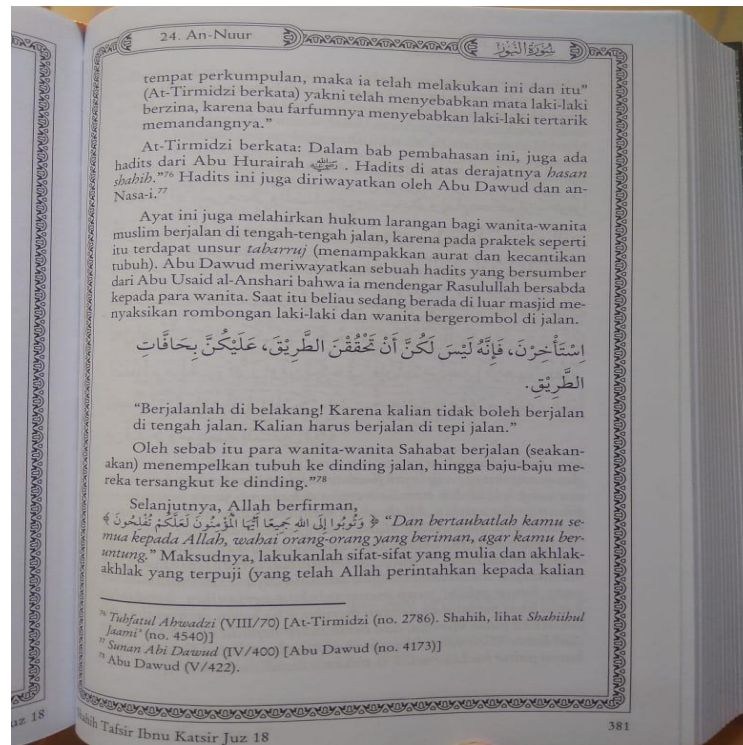 24. An-Nuur
سُوْرَةُ النُّوْرِ
tempat perkumpulan, maka ia telah melakukan ini dan itu"
(At-Tirmidzi berkata) yakni telah menyebabkan mata laki-laki
berzina, karena bau farfumnya menyebabkan laki-laki tertarik
memandangnya."
At-Tirmidzi berkata: Dalam bab pembahasan ini, juga ada
hadits dari Abu Hurairah رضي الله عنه. Hadits di atas derajatnya hasan
shahih."76 Hadits ini juga diriwayatkan oleh Abu Dawud dan an-
Nasa-i.77
Ayat ini juga melahirkan hukum larangan bagi wanita-wanita
muslim berjalan di tengah-tengah jalan, karena pada praktek seperti
itu terdapat unsur tabarruj (menampakkan aurat dan kecantikan
tubuh). Abu Dawud meriwayatkan sebuah hadits yang bersumber
dari Abu Usaid al-Anshari bahwa ia mendengar Rasulullah bersabda
kepada para wanita. Saat itu beliau sedang berada di luar masjid me-
nyaksikan rombongan laki-laki dan wanita bergerombol di jalan.
اِسْتَأْخِرْنَ، فَإِنَّهُ لَيْسَ لَكُنَّ أَنْ تَحْقُقْنَ الطَّرِيْقَ، عَلَيْكُنَّ بِحَافَّاتِ
الطَّرِيْقِ.
"Berjalanlah di belakang! Karena kalian tidak boleh berjalan
di tengah jalan. Kalian harus berjalan di tepi jalan."
Oleh sebab itu para wanita-wanita Sahabat berjalan (seakan-
akan) menempelkan tubuh ke dinding jalan, hingga baju-baju me-
reka tersangkut ke dinding."78
Selanjutnya, Allah berfirman,
﴿ وَتُوبُوا إِلَى اللهِ جَمِيعًا أَيُّهَا الْمُؤْمِنُونَ لَعَلَّكُمْ تُفْلِحُونَ ﴾ "Dan bertaubatlah kamu se-
mua kepada Allah, wahai orang-orang yang beriman, agar kamu ber-
untung." Maksudnya, lakukanlah sifat-sifat yang mulia dan akhlak-
akhlak yang terpuji (yang telah Allah perintahkan kepada kalian
76 Tuhfatul Ahwadzi (VIII/70) [At-Tirmidzi (no. 2786). Shahih, lihat Shahiihul
Jaami' (no. 4540)]
77 Sunan Abi Dawud (IV/400) [Abu Dawud (no. 4173)]
78 Abu Dawud (V/422).
uz 18
Shahih Tafsir Ibnu Katsir Juz 18
381